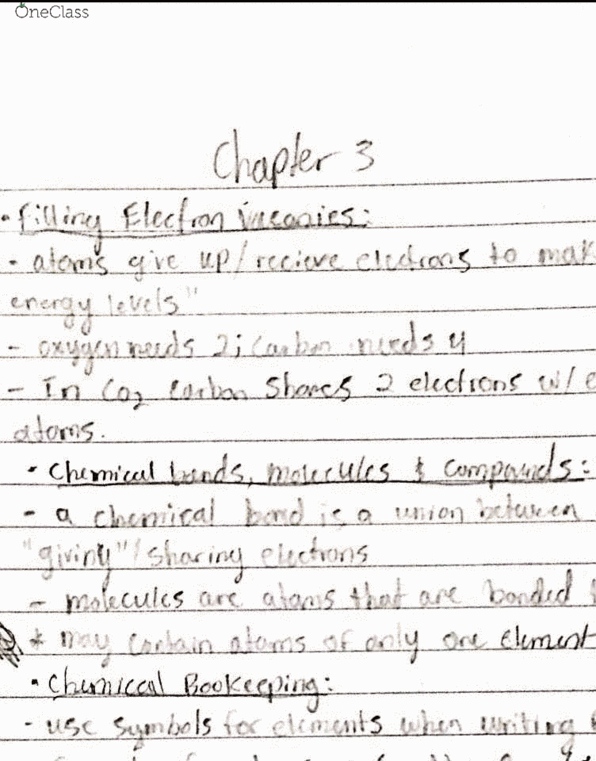 OneClass
Chapter 3
• Filling Electron Vacanies:
- atoms give up/recieve electrons to mak
energy levels"
- oxygen needs 2; Carbon needs 4
- In CO2 Carbon Shares 2 electrons w/ e
atoms.
• Chemical bonds, molecules & Compounds:
- a chemical bond is a union between
"giving"/sharing electrons
- molecules are atoms that are bonded
* may contain atoms of only one element
• Chemical Bookeeping:
- use symbols for elements when writing